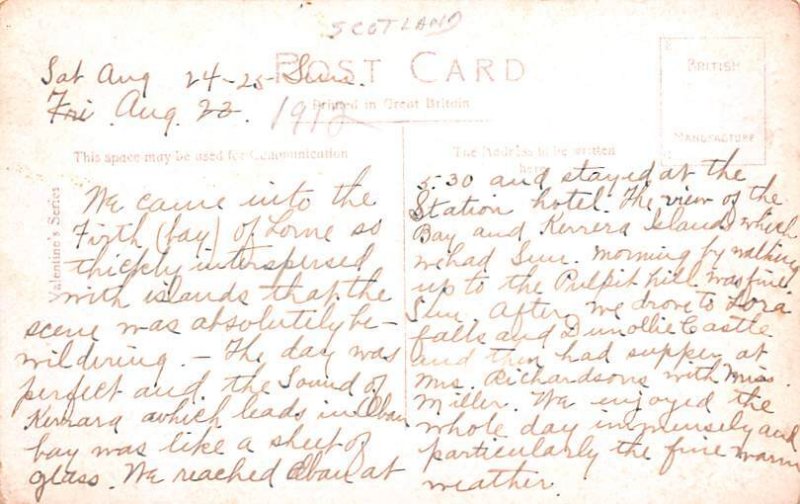 SCOTLAND
POST CARD
Sat Aug 24-25 Sun.
Fri Aug. 23. 1912
Printed in Great Britain
BRITISH
MANUFACTURE
This space may be used for Communication
The Address to be written
here
Valentine's Series
We came into the
Firth (bay) of Lorne so
thickly interspersed
with islands that the
scene was absolutely be-
wildering. – The day was
perfect and the Sound of
Kerrara which leads in Oban
bay was like a sheet of
glass. We reached Oban at
5.30 and stayed at the
Station hotel. The view of the
Bay and Kerrera Islands which
we had Sun. morning by walking
up to the Pulpit hill was fine.
Sun. After. we drove to Lora
falls and Dunollie Castle
and then had supper at
Mrs. Richardsons with Miss
Miller. We enjoyed the
whole day immensely and
particularly the fine warm
weather.